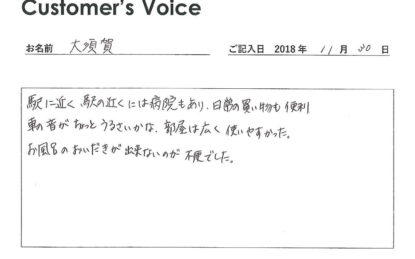 Customer's Voice
お名前 大須賀 ご記入日 2018 年 11 月 30 日
駅に近く 駅の近くには病院もあり、日常の買い物も便利
車の音がちょっとうるさいかな、部屋は広く使いやすかった。
お風呂のおいだきが出来ないのが不便でした。